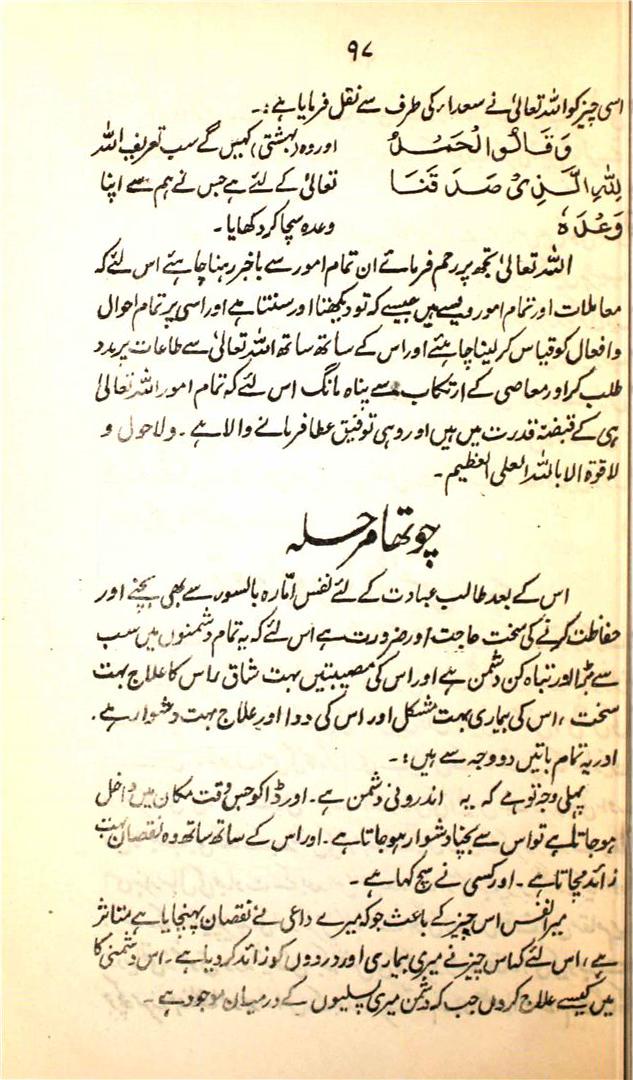 ۹۷
اسی چیز کو اللہ تعالیٰ نے سعداء کی طرف سے نقل فرمایا ہے :۔
وَقَالُوا الْحَمْدُ
لِلّٰہِ الَّذِیْ صَدَقَنَا
وَعْدَہٗ
اور وہ (بہشتی) کہیں گے سب تعریف اللہ
تعالیٰ کے لئے ہے جس نے ہم سے اپنا
وعدہ سچا کر دکھایا۔
اللہ تعالیٰ تجھ پر رحم فرمائے ان تمام امور سے باخبر رہنا چاہئے اس لئے کہ
معاملات اور تمام امور ویسے ہیں جیسے کہ تو دیکھتا اور سنتا ہے اور اسی پر تمام احوال
و افعال کو قیاس کر لینا چاہئیے اور اس کے ساتھ ساتھ اللہ تعالیٰ سے طاعات پر مدد
طلب کر اور معاصی کے ارتکاب سے پناہ مانگ اس لئے کہ تمام امور اللہ تعالیٰ
ہی کے قبضۂ قدرت میں ہیں اور وہی توفیق عطا فرمانے والا ہے۔ ولا حول و
لا قوۃ الا باللہ العلی العظیم۔
چوتھا مرحلہ
اس کے بعد طالب عبادت کے لئے نفس امّارہ بالسور سے بھی بچنے اور
حفاظت کرنے کی سخت حاجت اور ضرورت ہے اس لئے کہ یہ تمام دشمنوں میں سب
سے بڑا اور تباہ کن دشمن ہے اور اس کی مصیبتیں بہت شاق، اس کا علاج بہت
سخت، اس کی بیماری بہت مشکل اور اس کی دوا اور علاج بہت دشوار ہے۔
اور یہ تمام باتیں دو وجہ سے ہیں :۔
پہلی وجہ تو ہے کہ یہ اندرونی دشمن ہے۔ اور ڈاکو جس وقت مکان میں داخل
ہو جاتا ہے تو اس سے بچنا دشوار ہو جاتا ہے۔ اور اس کے ساتھ ساتھ وہ نقصان بہت
زائد مچاتا ہے۔ اور کسی نے سچ کہا ہے۔
میرا نفس اس چیز کے باعث جو کہ میرے داعی نے نقصان پہنچایا ہے متاثر
ہے، اس لئے کہ اس چیز نے میری بیماری اور دردوں کو زائد کر دیا ہے۔ اس دشمنی کا
میں کیسے علاج کروں جب کہ دشمن میری پسلیوں کے درمیان موجود ہے۔